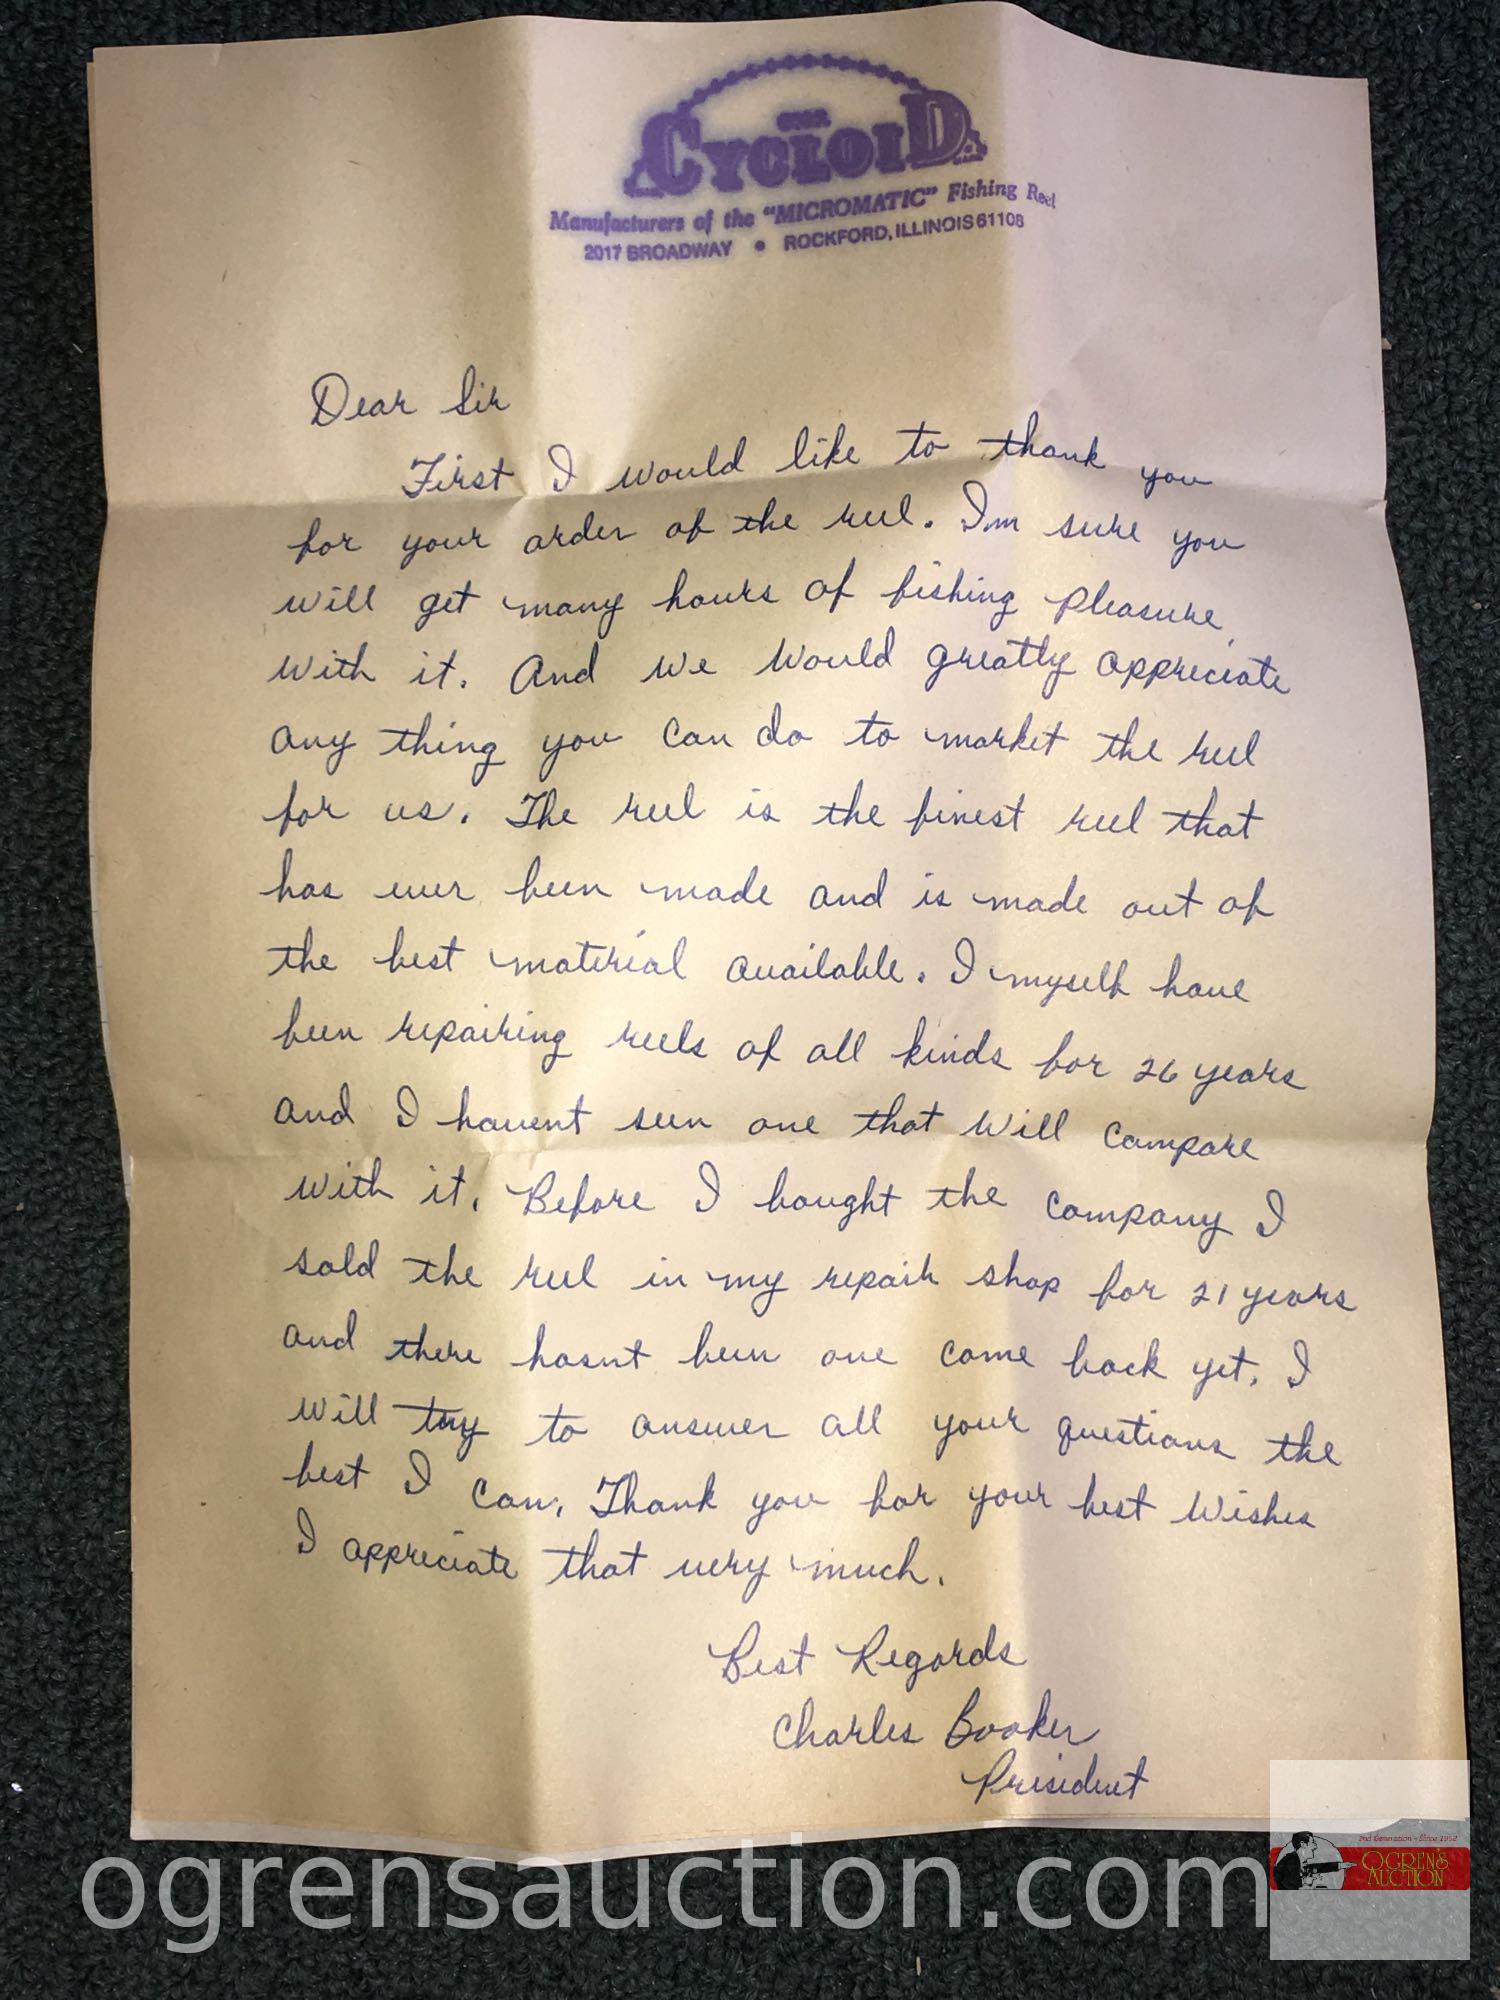 CYCLOID
Manufacturers of the "MICROMATIC" Fishing Reel
2017 BROADWAY • ROCKFORD, ILLINOIS 61108
Dear Sir
First I would like to thank you
for your order of the reel. I'm sure you
will get many hours of fishing pleasure
with it. And we would greatly appreciate
any thing you can do to market the reel
for us. The reel is the finest reel that
has ever been made and is made out of
the best material available. I myself have
been repairing reels of all kinds for 26 years
and I havent seen one that will compare
with it. Before I bought the company I
sold the reel in my repair shop for 21 years
and there hasnt been one come back yet. I
will try to answer all your questions the
best I can. Thank you for your best wishes
I appreciate that very much.
Best Regards
Charles Booker
President
ogrensauction.com
2nd Generation - Since 1952
OGREN'S
AUCTION